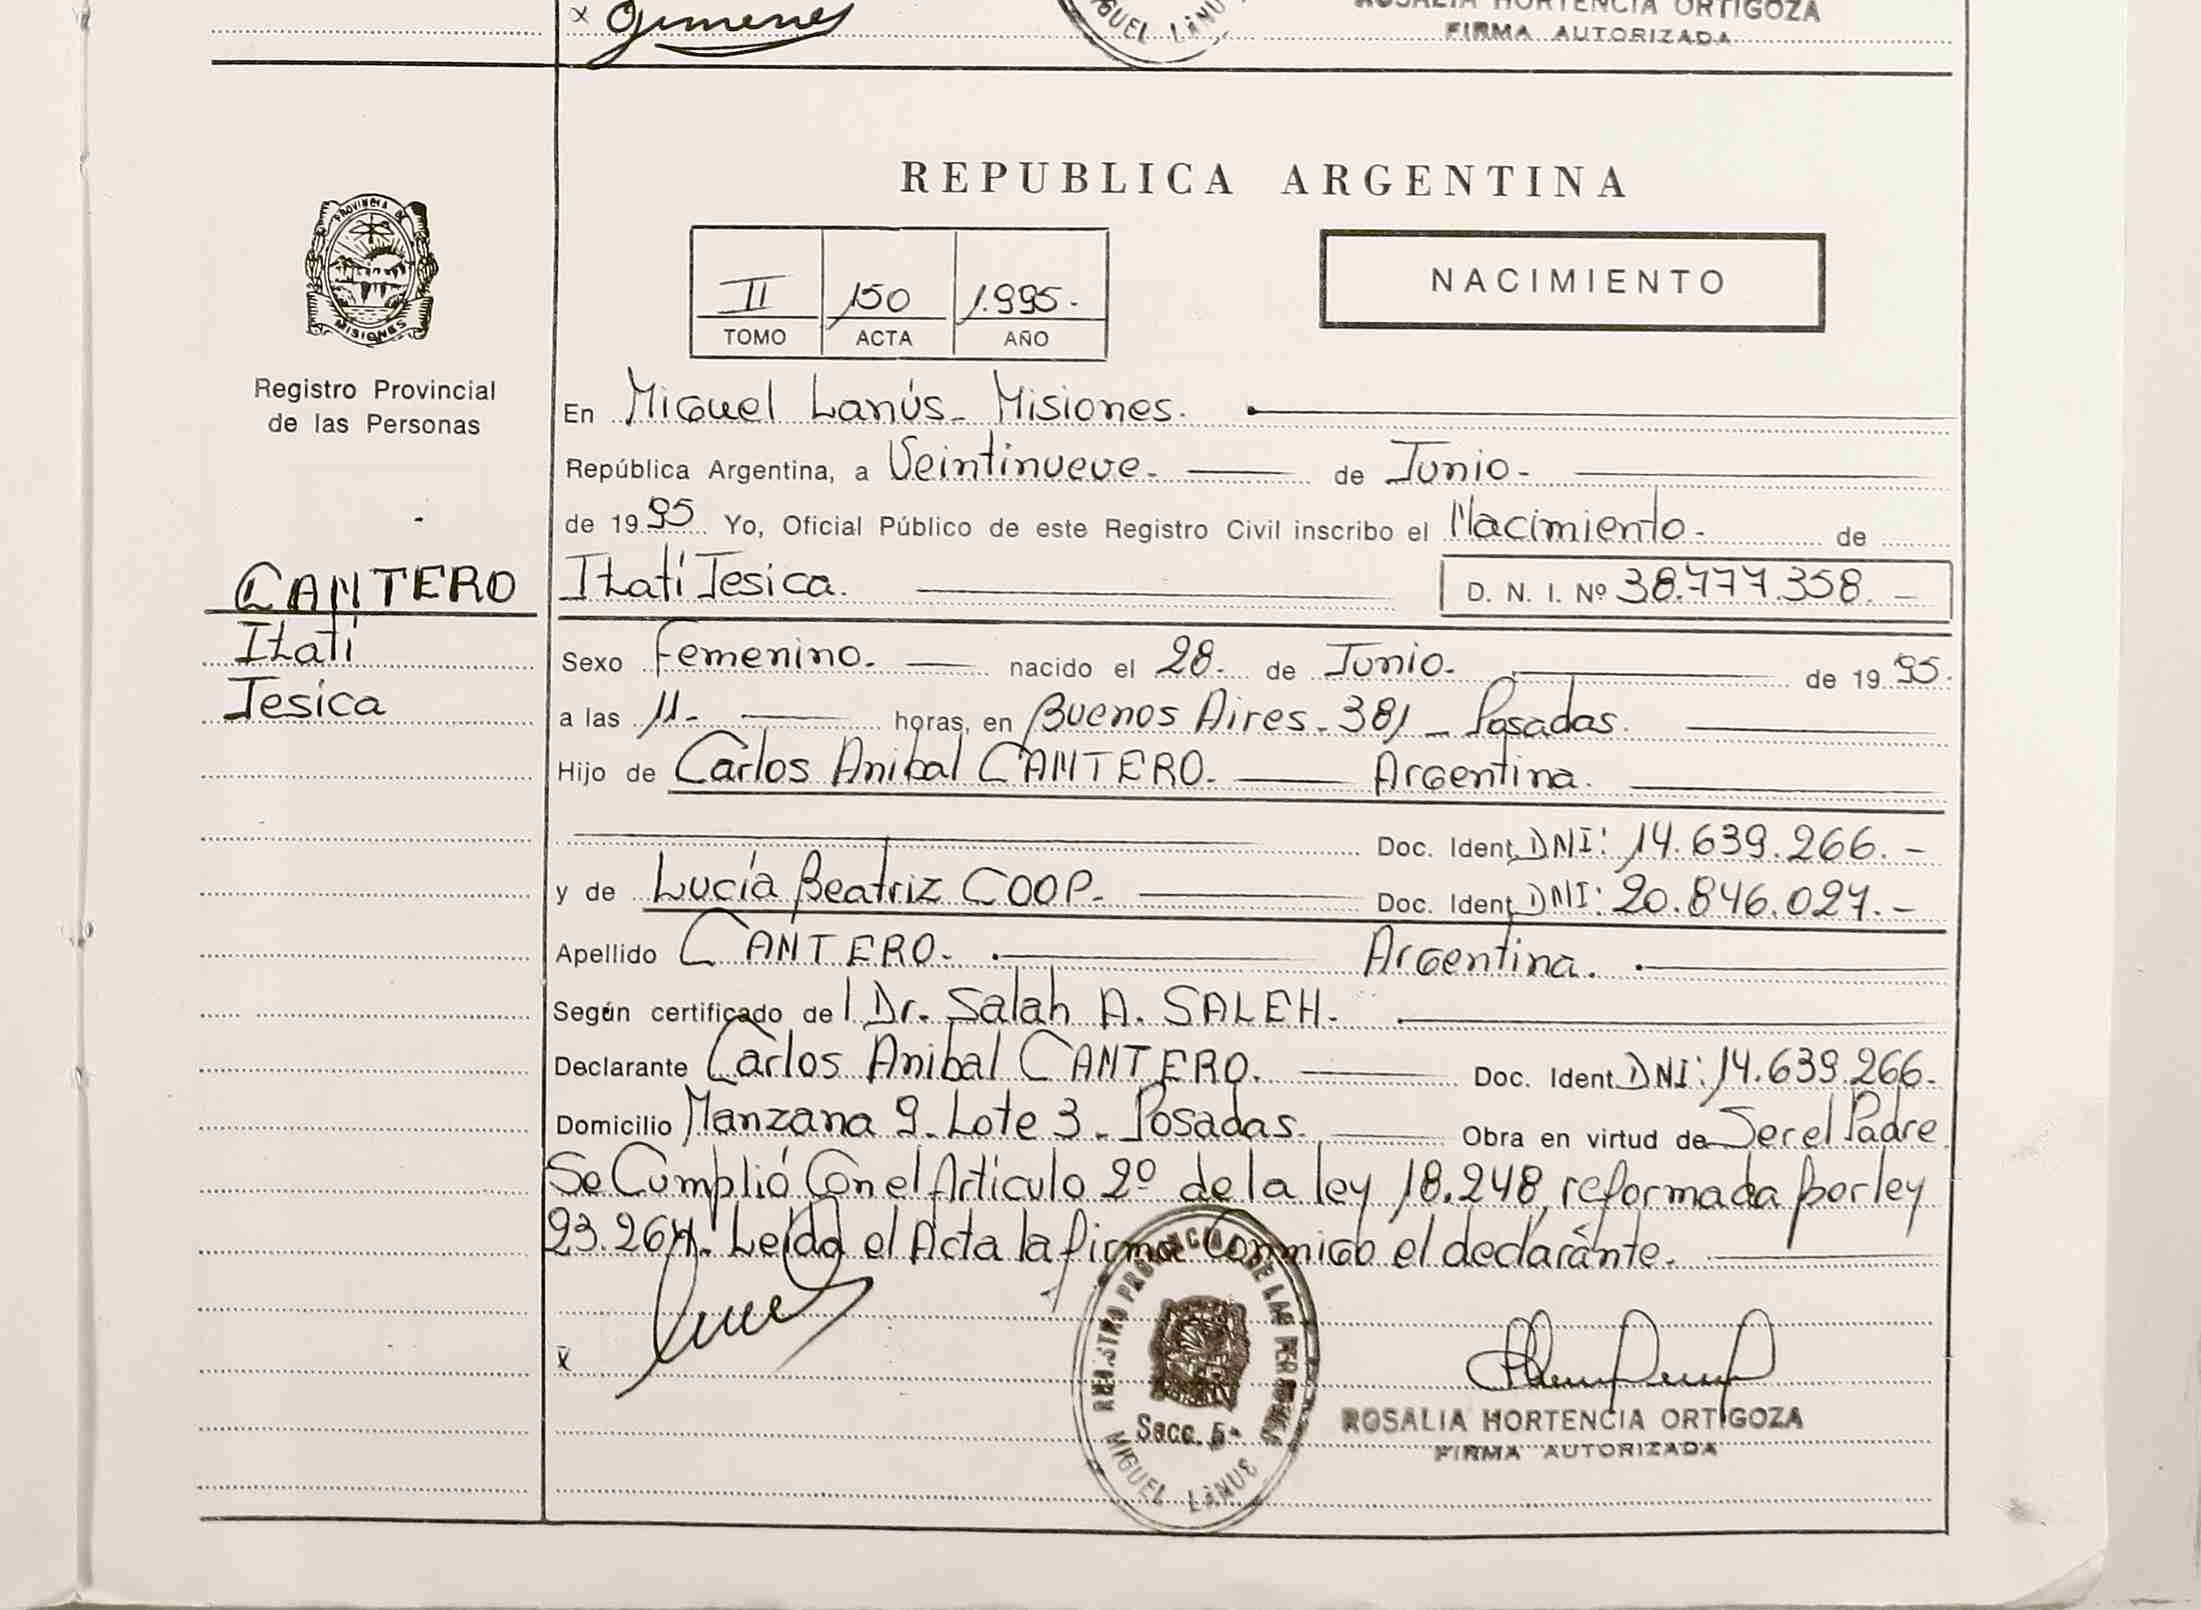 x Gimenes
MIGUEL LANUS
ROSALIA HORTENCIA ORTIGOZA
FIRMA AUTORIZADA
REPUBLICA ARGENTINA
PROVINCIA DE
MISIONES
II 150 1.995.-
TOMO ACTA AÑO
NACIMIENTO
Registro Provincial
de las Personas
En Miguel Lanús - Misiones.
República Argentina, a Veintinueve.- de Junio.-
de 1995 Yo, Oficial Público de este Registro Civil inscribo el Nacimiento.- de
CANTERO
Itatí Jesica. D. N. I. Nº 38.777.358.-
Itatí
Sexo Femenino.- nacido el 28.- de Junio.- de 1995.
Jesica
a las 11.- horas, en Buenos Aires - 381 - Posadas.
Hijo de Carlos Anibal CANTERO.- Argentina.
Doc. Ident. DNI: 14.639.266.-
y de Lucía Beatriz COOP.- Doc. Ident. DNI: 20.846.027.-
Apellido CANTERO.- Argentina.
Según certificado del Dr. Salah A. SALEH.-
Declarante Carlos Anibal CANTERO. Doc. Ident. DNI: 14.639.266.-
Domicilio Manzana 9 - Lote 3 - Posadas. Obra en virtud de Ser el Padre
Se Cumplió Con el Artículo 2º de la ley 18.248, reformada por ley
23.264. Leída el Acta la firma Conmigo el declarante.
x
REGISTRO PROVINCIAL DE LAS PERSONAS
Secc. 5ª
MIGUEL LANUS
ROSALIA HORTENCIA ORTIGOZA
FIRMA AUTORIZADA